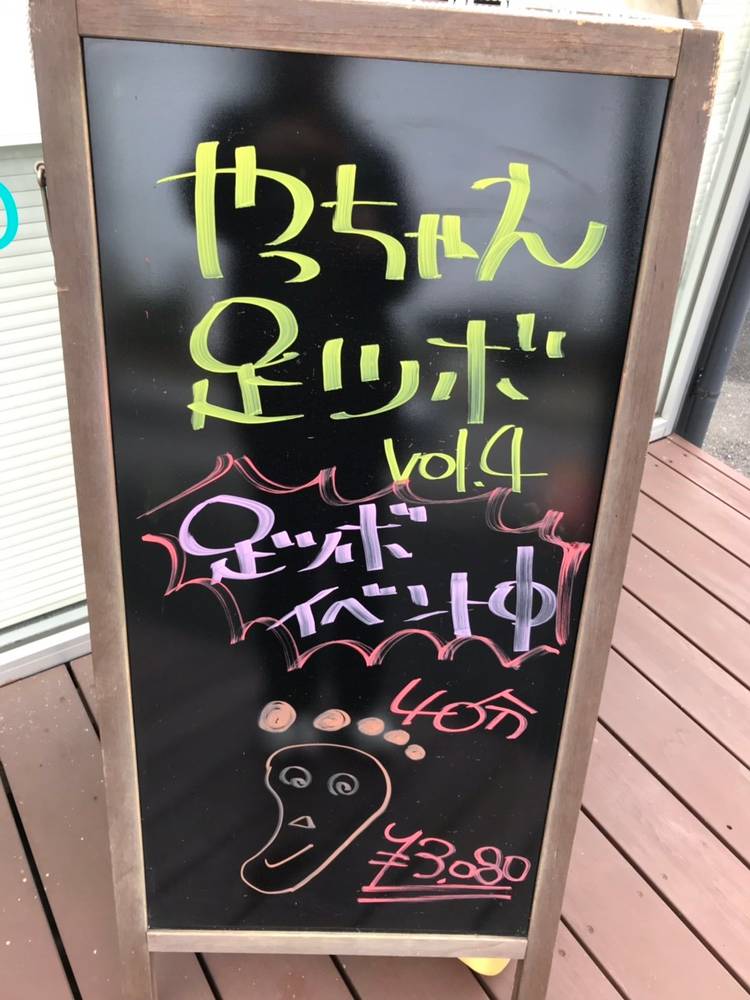 やっちゃん
足ツボ
vol.4
足ツボ
イベント中
40分
¥3.080